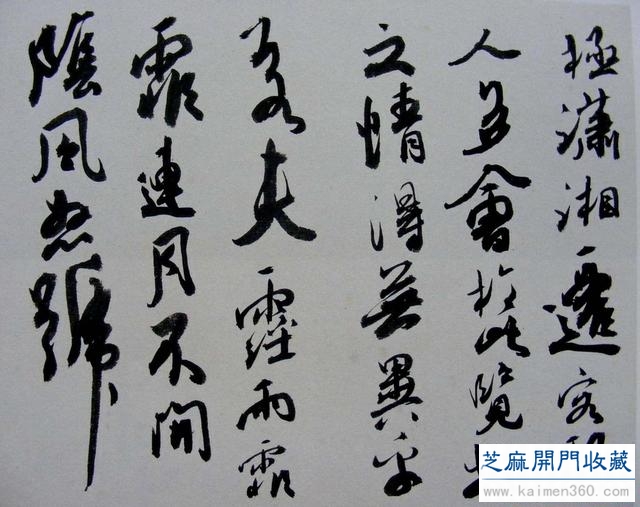 極瀟湘遷客
人多會於此覽
之情得無異乎
若夫霪雨霏
霏連月不開
陰風怒號
芝麻開門收藏
www.kaimen360.com